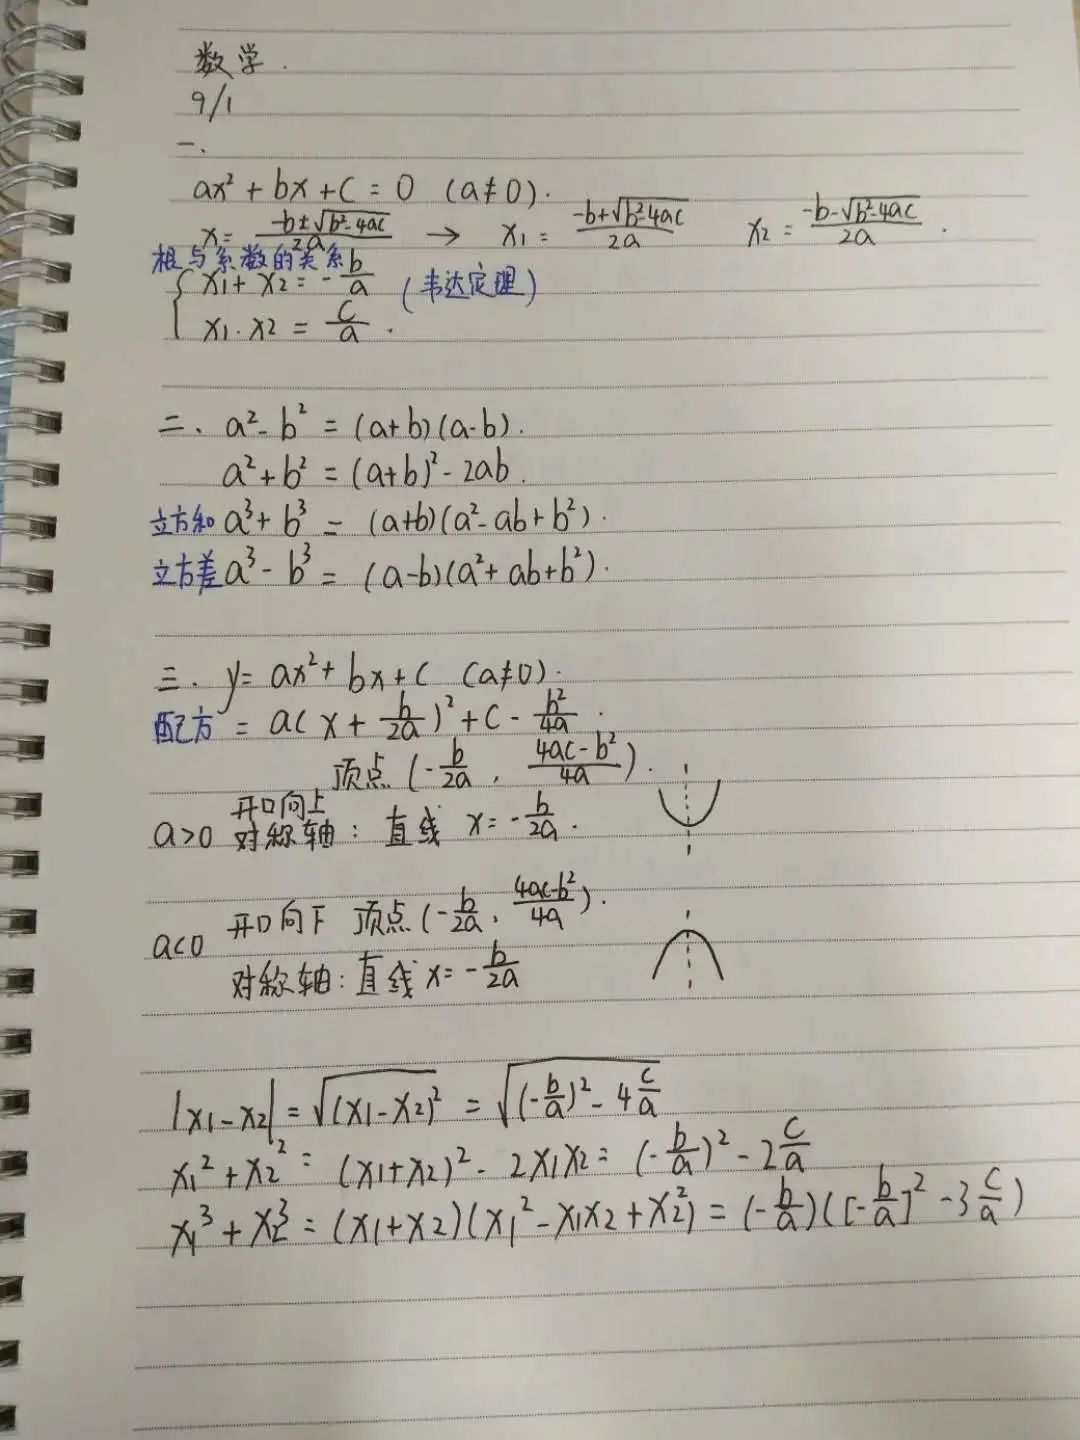 数学.
9/1
一.
ax² + bx + c = 0 (a≠0).
x = \frac{-b±\sqrt{b²-4ac}}{2a} → x₁ = \frac{-b+\sqrt{b²-4ac}}{2a} x₂ = \frac{-b-\sqrt{b²-4ac}}{2a}.
根与系数的关系
{ x₁ + x₂ = -\frac{b}{a} (韦达定理)
x₁·x₂ = \frac{c}{a}.
二. a² - b² = (a+b)(a-b).
a² + b² = (a+b)² - 2ab.
立方和 a³ + b³ = (a+b)(a² - ab + b²).
立方差 a³ - b³ = (a-b)(a² + ab + b²).
三. y = ax² + bx + c (a≠0).
配方 = a(x + \frac{b}{2a})² + c - \frac{b²}{4a}.
顶点 (-\frac{b}{2a}, \frac{4ac-b²}{4a}).
开口向上
a>0 对称轴: 直线 x = -\frac{b}{2a}.
a<0 开口向下 顶点 (-\frac{b}{2a}, \frac{4ac-b²}{4a}).
对称轴: 直线 x = -\frac{b}{2a}
|x₁-x₂| = \sqrt{(x₁-x₂)²} = \sqrt{(-\frac{b}{a})² - 4\frac{c}{a}}
x₁² + x₂² = (x₁+x₂)² - 2x₁x₂ = (-\frac{b}{a})² - 2\frac{c}{a}
x₁³ + x₂³ = (x₁+x₂)(x₁² - x₁x₂ + x₂²) = (-\frac{b}{a})([-\frac{b}{a}]² - 3\frac{c}{a})